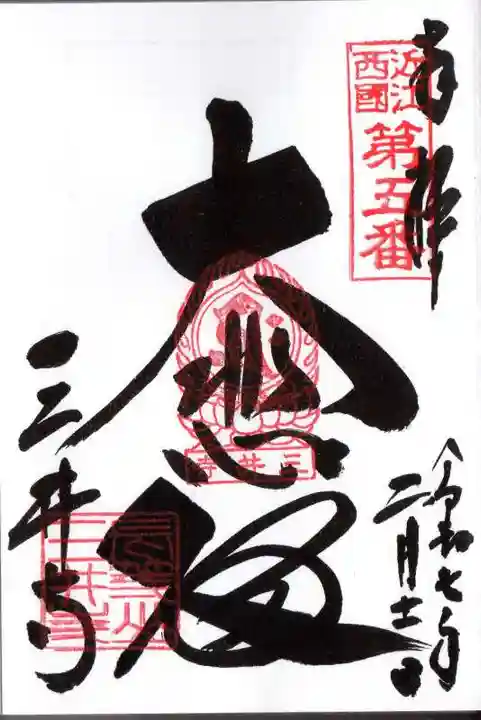 奉拝
近江
西國
第五番
令和七年
二月十一日
大悲殿
三井寺
三井寺